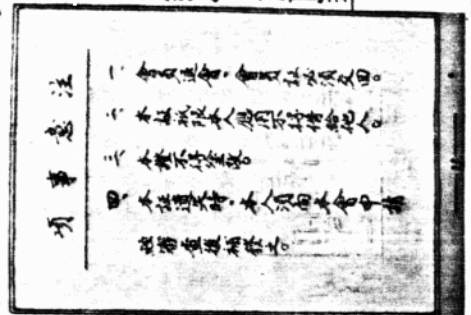 注意事項
一、會員退會，會員証必須交回。
二、本証祇限本人應用不得借給他人。
三、本證不得塗改。
四、本証遺失時，本人須向本會申請
經審查後補發之。